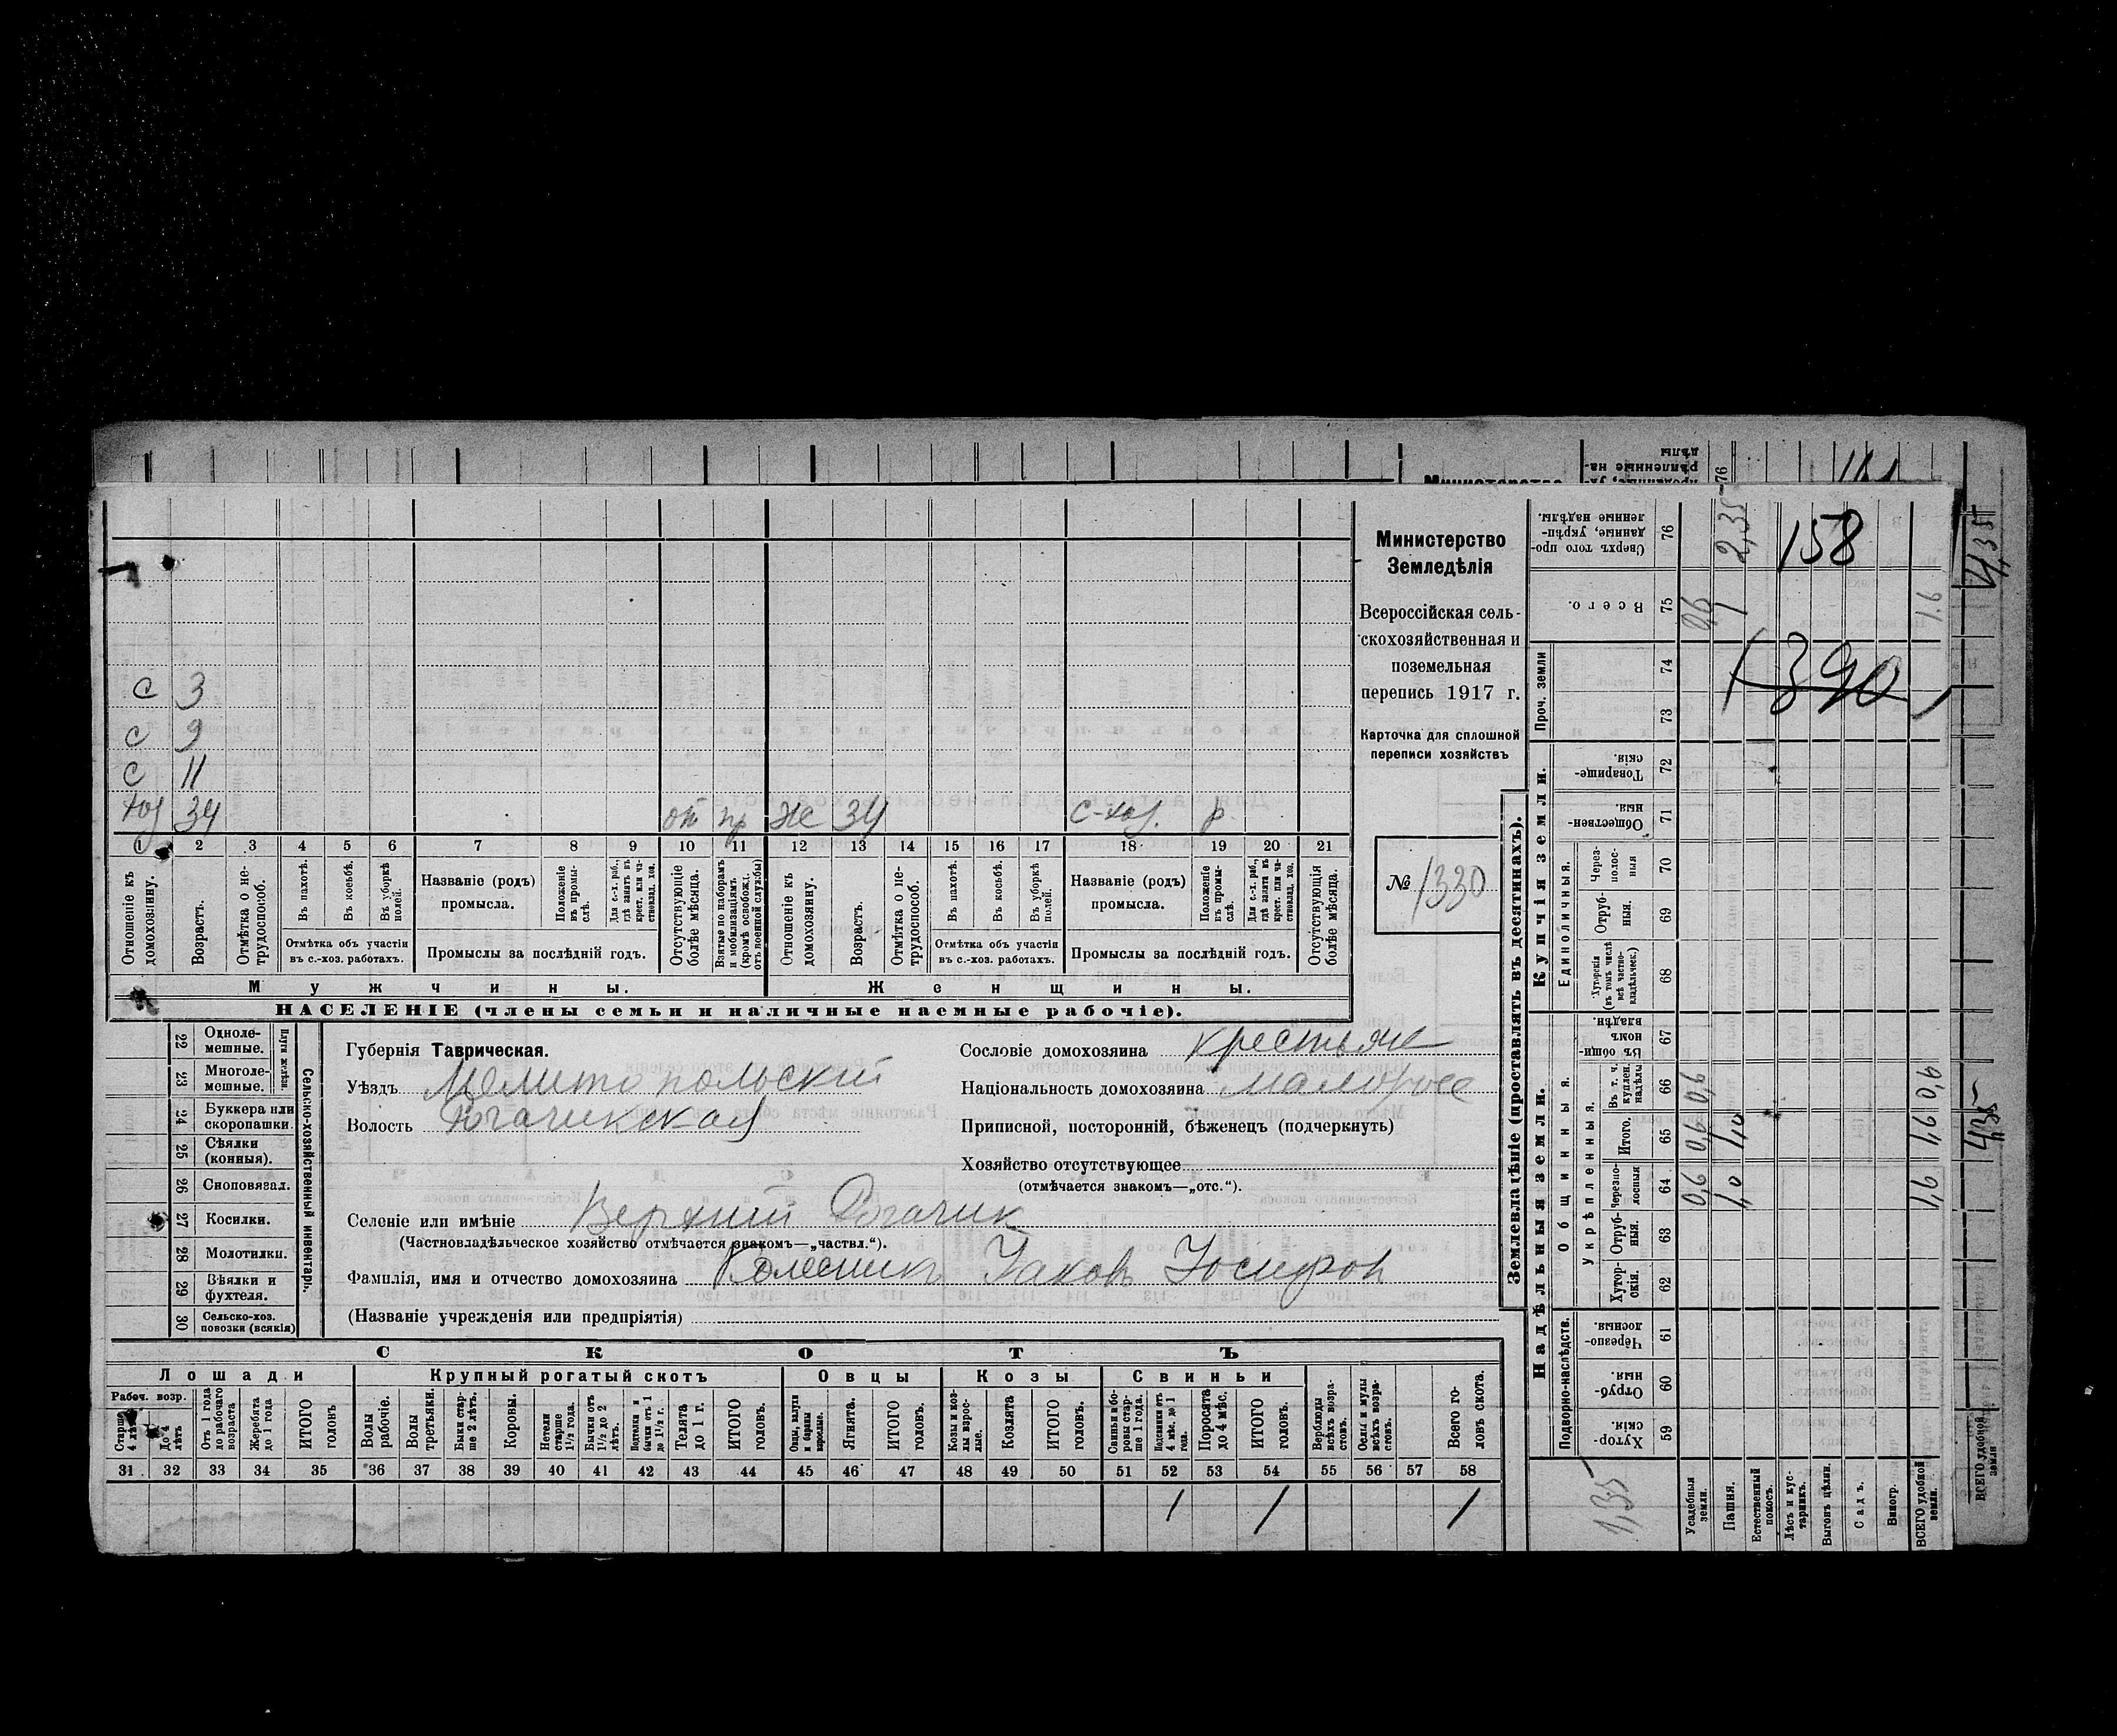 Министерство
Земледѣлія
Всероссійская сель-
скохозяйственная и
поземельная
перепись 1917 г.
Карточка для сплошной
переписи хозяйствъ
№ 1330
с 3
с 9
с 11
хоз 34 от пр ж 34 с-хоз. р.
1 2 3 4 5 6 7 8 9 10 11 12 13 14 15 16 17 18 19 20 21
Отношеніе къ домохозяину.
Возрастъ.
Отмѣтка о не-трудоспособ.
Въ пахотѣ.
Въ косьбѣ.
Въ уборкѣ полей.
Отмѣтка объ участіи въ с.-хоз. работахъ.
Названіе (родъ) промысла.
Положеніе въ промы-слѣ.
Для с.-х. раб., гдѣ занятъ въ крест. или ча-стновлад. хоз.
Промыслы за послѣдній годъ.
Отсутствующіе болѣе мѣсяца.
Взятые по наборамъ и мобилизаціямъ (кромѣ освобожд. отъ военной службы)
Отношеніе къ домохозяину.
Возрастъ.
Отмѣтка о не-трудоспособ.
Въ пахотѣ.
Въ косьбѣ.
Въ уборкѣ полей.
Отмѣтка объ участіи въ с.-хоз. работахъ.
Названіе (родъ) промысла.
Положеніе въ промы-слѣ.
Для с.-х. раб., гдѣ занята въ крест. или ча-стновлад. хоз.
Промыслы за послѣдній годъ.
Отсутствующія болѣе мѣсяца.
Мужчины. Женщины.
НАСЕЛЕНІЕ (члены семьи и наличные наемные рабочіе).
22 Одноле-мешные.
23 Многоле-мешные.
Плуги желѣзн.
24 Буккера или скоропашки.
25 Сѣялки (конныя).
26 Сноповязал.
27 Косилки.
28 Молотилки.
29 Вѣялки и фухтеля.
30 Сельско-хоз. повозки (всякія)
Сельско-хозяйственный инвентарь.
Губернія Таврическая.
Уѣздъ Мелитопольский
Волость Рогачикская
Сословіе домохозяина крестьян
Національность домохозяина малоросс
Приписной, посторонній, бѣженецъ (подчеркнуть)
Хозяйство отсутствующее
(отмѣчается знакомъ—„отс.“).
Селеніе или имѣніе Верхний Рогачик
(Частновладѣльческое хозяйство отмѣчается знакомъ—„частвл.“).
Фамилія, имя и отчество домохозяина Колесник Яковъ Иосифов
(Названіе учрежденія или предпріятія)
СКОТЪ
Лошади Крупный рогатый скотъ Овцы Козы Свиньи
Рабоч. возр.
Старше 4 лѣтъ
До 4 лѣтъ
Отъ 1 года до рабочаго возраста
Жеребята до 1 года
ИТОГО головъ
Волы рабочіе.
Волы третьяки.
Быки стар-ше 2 лѣтъ.
Коровы.
Нетели старше 1½ года.
Бычки отъ 1½ до 2 лѣтъ.
Подтелки и бычки отъ 1 до 1½ г.
Телята до 1 г.
ИТОГО головъ.
Овцы, валухи и бараны взрослые.
Ягнята.
ИТОГО головъ.
Козы и коз-лы взрос-лые.
Козлята
ИТОГО головъ.
Свиньи и бо-ровы стар-ше 1 года.
Подсвинки отъ 4 мѣс. до 1 года.
Поросята до 4 мѣс.
ИТОГО головъ.
Верблюды всѣхъ возра-стовъ.
Ослы и мулы всѣхъ возра-стовъ.
Всего го-ловъ скота.
31 32 33 34 35 36 37 38 39 40 41 42 43 44 45 46 47 48 49 50 51 52 53 54 55 56 57 58
1 1 1
Землевладѣніе (проставлять въ десятинахъ).
Надѣльныя земли. Купчія земли. Проч. земли
Подворно-наслѣдств.
Общинныя.
Укрѣпленныя.
Единоличныя.
Хутор-скія. 59
Отруб-ныя. 60
Черезпо-лосныя. 61
Хутор-скія. 62
Отруб-ныя. 63
Черезпо-лосныя 64
Итого. 65
Въ т. ч. куплен. надѣлы 66
Въ общи-номъ владѣн. 67
Хуторскія (въ томъ числѣ всѣ частно-владѣльческ.) 68
Отруб-ныя. 69
Через-полос-ныя 70
Обществен-ныя. 71
Товарище-скія. 72
73
74
Всего. 75
Сверхъ того про-данные, укрѣп-ленные надѣлы. 76
Усадебныя земли. 0,6 0,6 0,6
Пашня. 1,0 1,0 2,35
Естественный покосъ.
Лѣсъ и кус-тарникъ.
Выгонъ цѣлин.
Садъ.
Виногр.
ВСЕГО удобной земли. 1,6 1,6 0,6 1,6
1,35
158
1390
4,35
4,35
ВСЕГО удобной земли